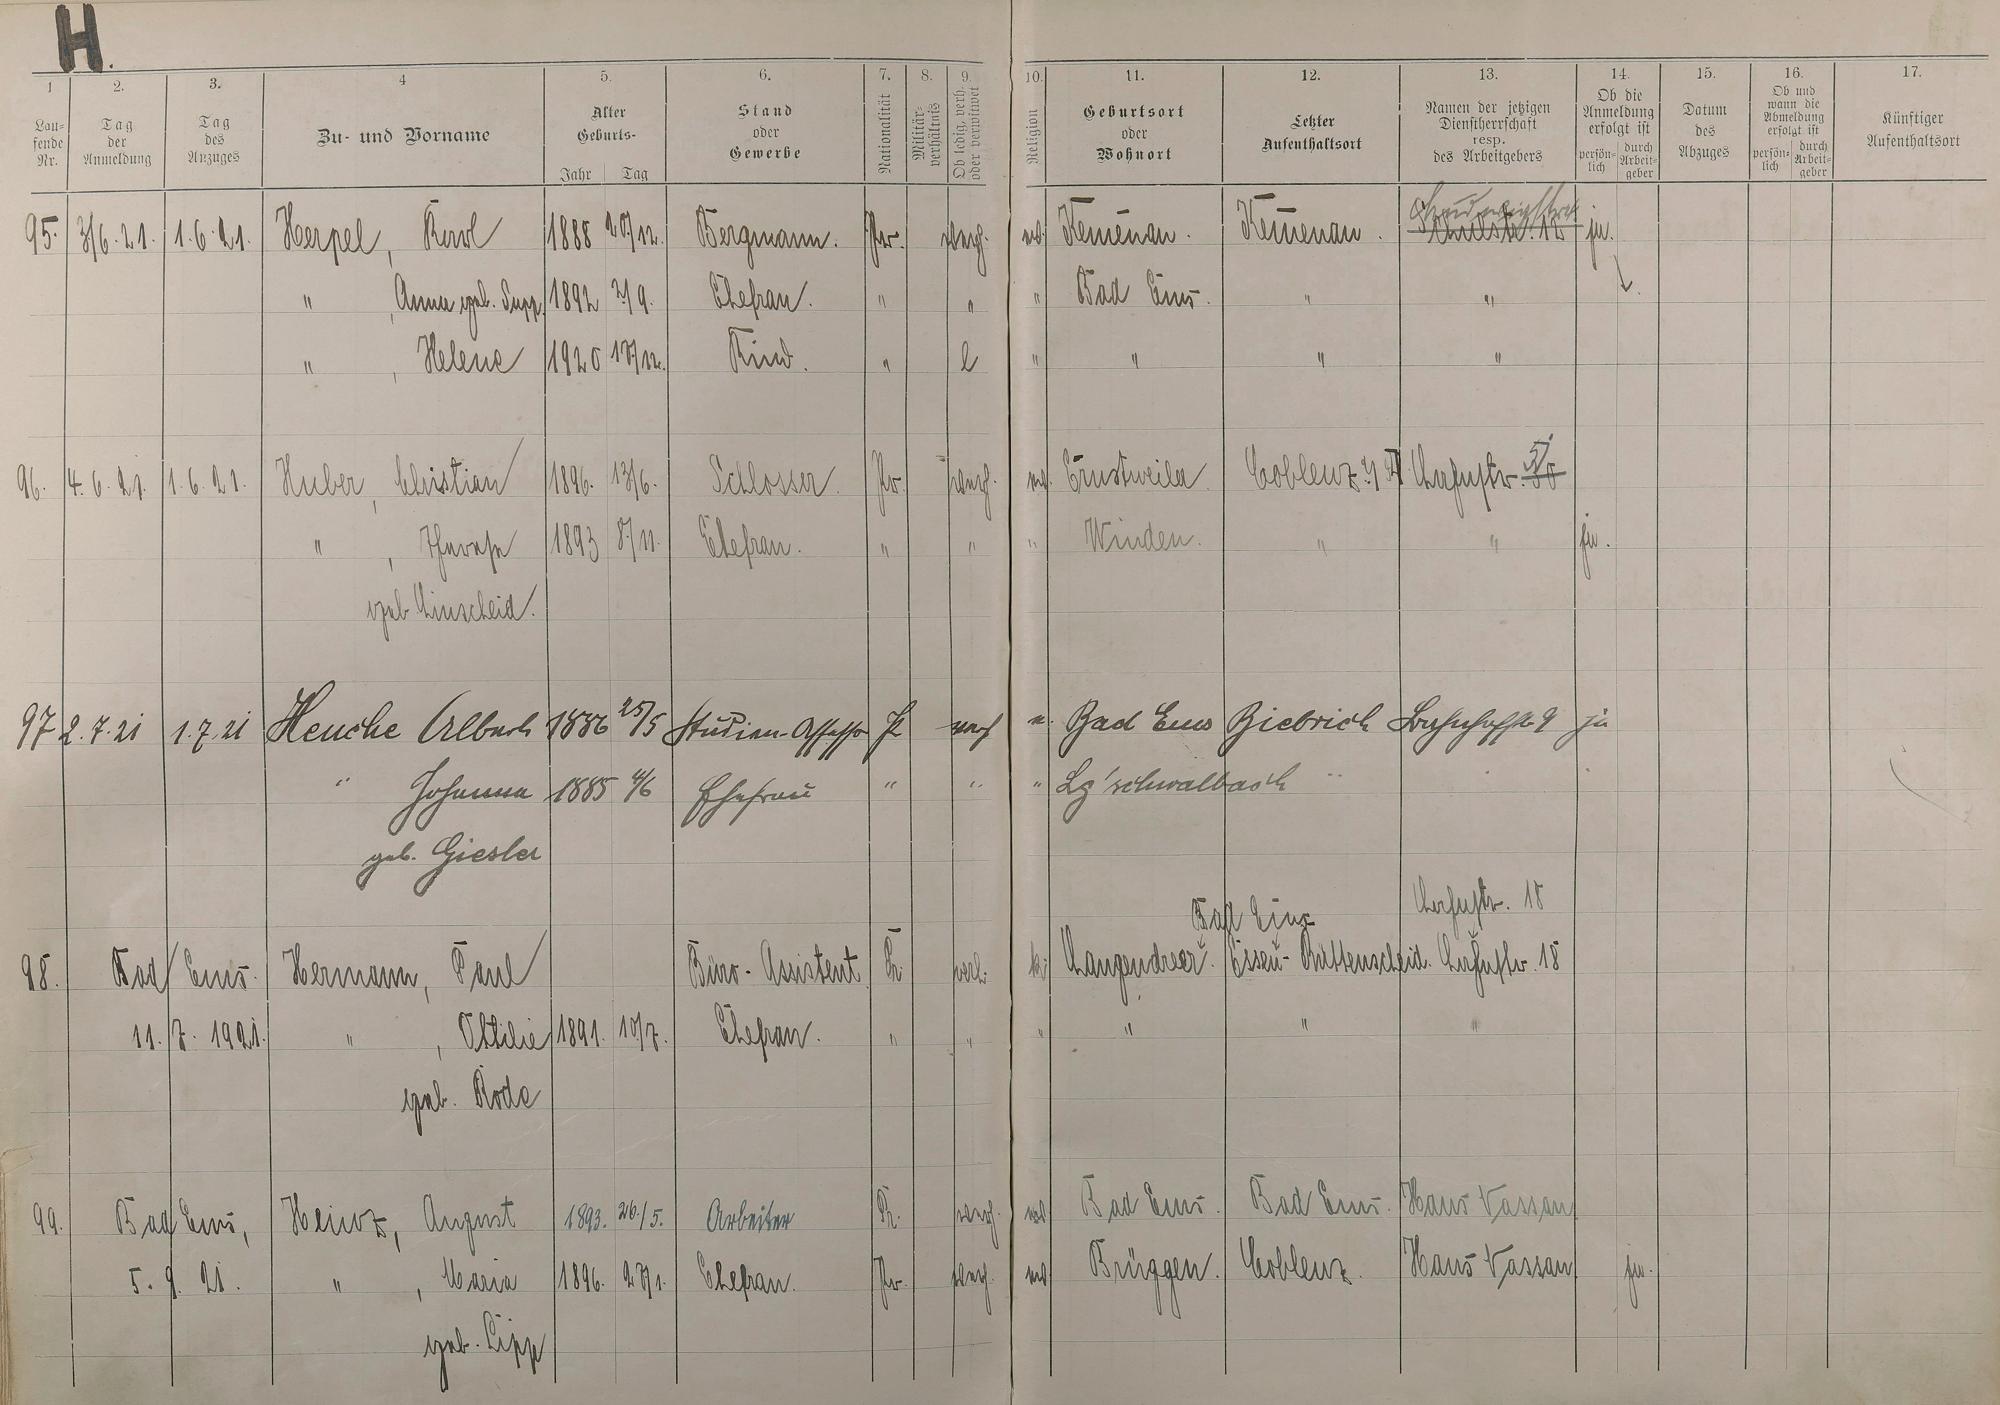 H.
1 2. 3. 4 5. 6. 7. 8. 9. 10. 11. 12. 13. 14. 15. 16. 17.
Lau-
fende
Nr.
Tag
der
Anmeldung
Tag
des
Anzuges
Zu- und Vorname
Alter
Geburts-
Jahr Tag
Stand
oder
Gewerbe
Nationalität
Militär-
verhältnis
Ob ledig, verh.
oder verwitwet
Religion
Geburtsort
oder
Wohnort
Letzter
Aufenthaltsort
Namen der jetzigen
Dienstherrschaft
resp.
des Arbeitgebers
Ob die
Anmeldung
erfolgt ist
persön-
lich
durch
Arbeit-
geber
Datum
des
Abzuges
Ob und
wann die
Abmeldung
erfolgt ist
persön-
lich
durch
Arbeit-
geber
Künftiger
Aufenthaltsort
95. 3/6.21. 1.6.21. Herpel, Karl 1888 Bergmann. Pr. verh. Kemenau. Kemenau. ja.
" , Anna geb. 1892 2/9. Ehefrau. " " " Bad Ems. " "
" , Helene 1920 Kind. " l " " " "
96. 4.6.21. 1.6.21. Huber, Christian 1896. 13/6. Schlosser. Pr. verh. Ernstweiler Coblenz
" , 1893 8/11. Ehefrau. " " " Winden. " " ja.
geb. Linscheid.
97 2.7.21 1.7.21 Heuche Albert 1886 25/5 Studien-Assessor Pr verh Bad Ems Biebrich 9 ja
" Johanna 1885 4/6 Ehefrau " " " Lg'schwalbach "
geb. Giesler
Bad Ems Lahnstr. 18
98. Bad Ems. Hermann, Paul Büro-Assistent Pr verh. Langendreer. Essen-Rüttenscheid. Lahnstr. 18
11. 7. 1921. " , Ottilie 1891. 10/7. Ehefrau. " " " " " "
geb. Rode
99. Bad Ems, Heinz, August 1893. 26./5. Arbeiter Pr. verh. Bad Ems. Bad Ems. Haus Nassau
5. 9. 21. " , Maria 1896. Ehefrau. Pr. verh. Brüggen. Coblenz. Haus Nassau ja.
geb. Lipp